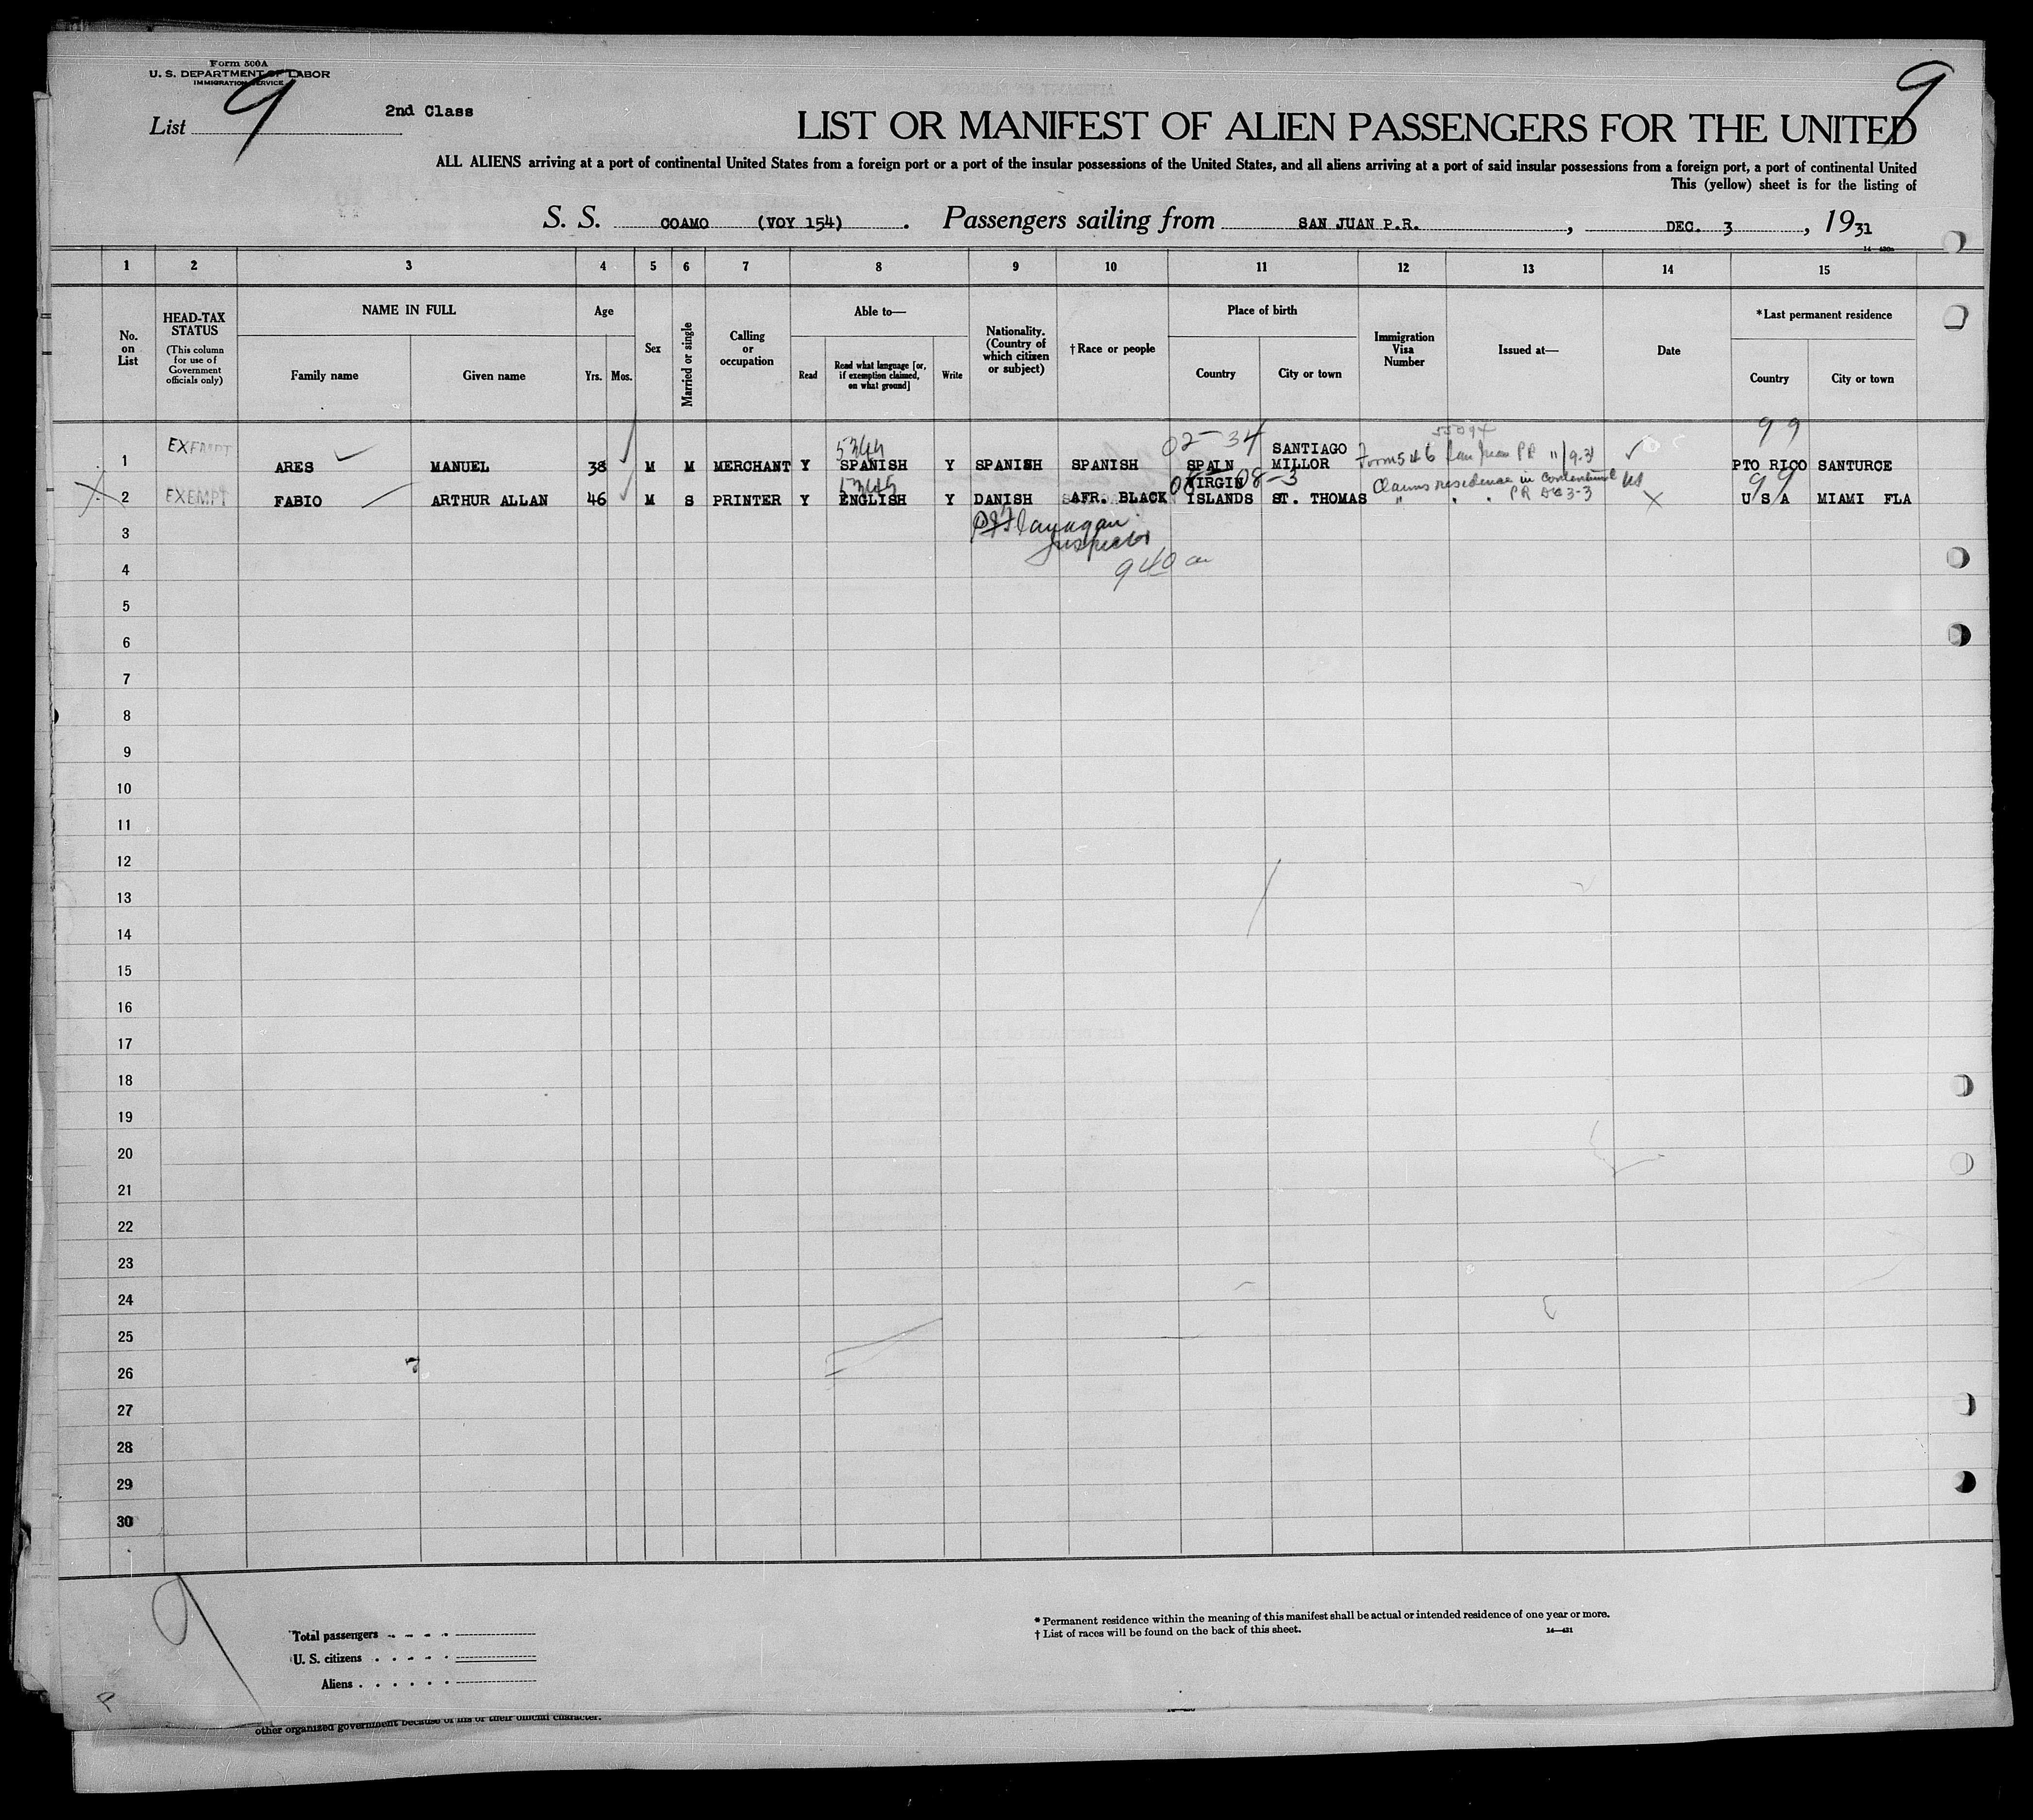 Form 500A
U. S. DEPARTMENT OF LABOR
IMMIGRATION SERVICE
List 9
2nd Class
9
LIST OR MANIFEST OF ALIEN PASSENGERS FOR THE UNITED
ALL ALIENS arriving at a port of continental United States from a foreign port or a port of the insular possessions of the United States, and all aliens arriving at a port of said insular possessions from a foreign port, a port of continental United
This (yellow) sheet is for the listing of
S. S. COAMO (VOY 154). Passengers sailing from SAN JUAN P.R., DEC. 3, 1931
1 2 3 4 5 6 7 8 9 10 11 12 13 14 15
No. on List
HEAD-TAX STATUS (This column for use of Government officials only)
NAME IN FULL
Family name
Given name
Age
Yrs. Mos.
Sex
Married or single
Calling or occupation
Able to—
Read
Read what language [or, if exemption claimed, on what ground]
Write
Nationality. (Country of which citizen or subject)
†Race or people
Place of birth
Country
City or town
Immigration Visa Number
Issued at—
Date
*Last permanent residence
Country
City or town
99
02-34
1 EXEMPT ARES MANUEL 38 M M MERCHANT Y SPANISH Y SPANISH SPANISH SPAIN SANTIAGO MILLOR Form 546 San Juan PR 11/9-31 PTO RICO SANTURCE
99
2 EXEMPT FABIO ARTHUR ALLAN 46 M S PRINTER Y ENGLISH Y DANISH AFR. BLACK VIRGIN ISLANDS ST. THOMAS Claims residence in continental US " " " PR USA MIAMI FLA
3
Flanagan
Inspector
940 am
4
5
6
7
8
9
10
11
12
13
14
15
16
17
18
19
20
21
22
23
24
25
26
27
28
29
30
9
Total passengers
U. S. citizens
Aliens
* Permanent residence within the meaning of this manifest shall be actual or intended residence of one year or more.
† List of races will be found on the back of this sheet.
14—421
P
other organized government because of his or their official character.